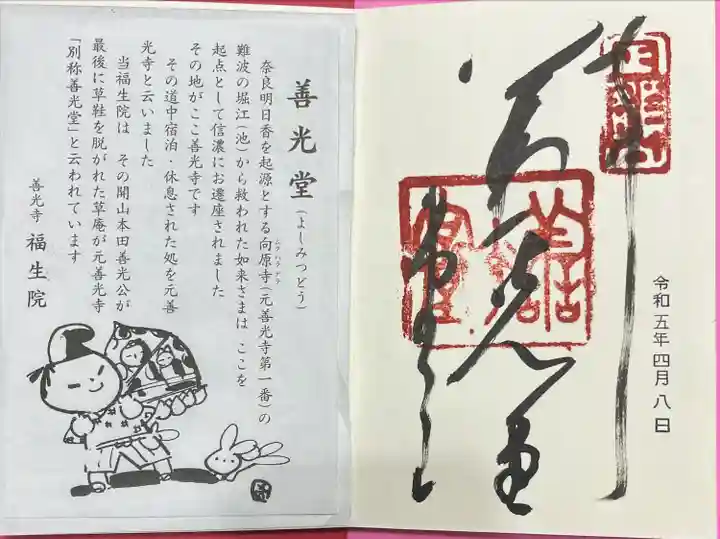 善光堂(よしみつどう)
奈良明日香を起源とする向原寺(元善光寺第一番)の
ムクハラデラ
難波の堀江(池)から救われた如来さまは ここを
起点として信濃にお遷座されました
その地がここ善光寺です
その道中宿泊・休息された処を元善
光寺と云いました
当福生院は その開山本田善光公が
最後に草鞋を脱がれた草庵が元善光寺
「別称善光堂」と云われています
善光寺 福生院
善光堂
令和五年四月八日